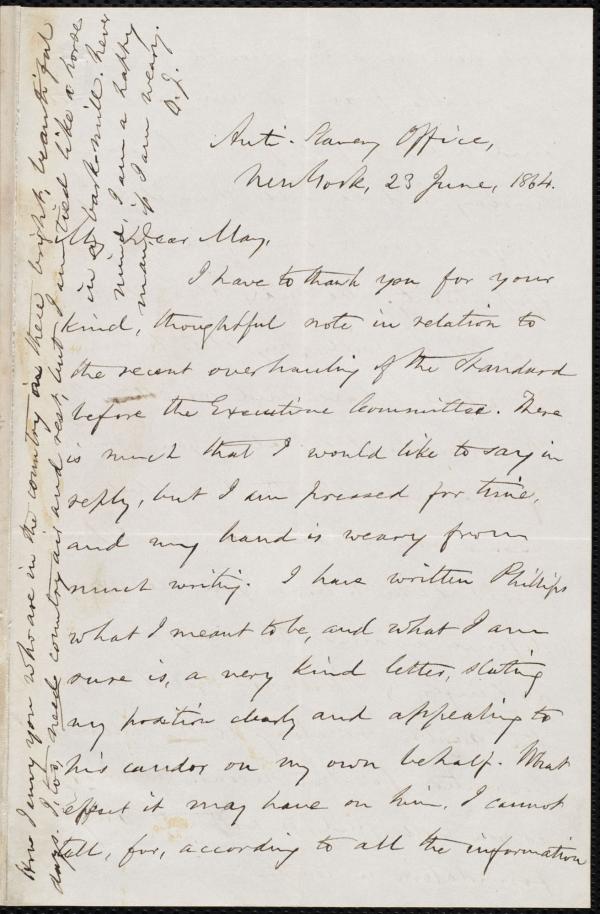 Anti-Slavery Office,
New York, 23 June, 1864.
My Dear May,
I have to thank you for your
kind, thoughtful note in relation to
the recent overhauling of the Standard
before the Executive Committee. There
is much that I would like to say in
reply, but I am pressed for time,
and my hand is weary from
much writing. I have written Phillips
what I meant to be, and what I am
sure is, a very kind letter, stating
my position clearly and appealing to
his candor on my own behalf. What
effect it may have on him, I cannot
tell, for, according to all the information
How I envy you who are in the country in these bright, beautiful
days. I, too, need country air and rest, but I am tied like a horse
in a bark-mill. Never
mind, I am a happy
man, if I am weary.
O. J.